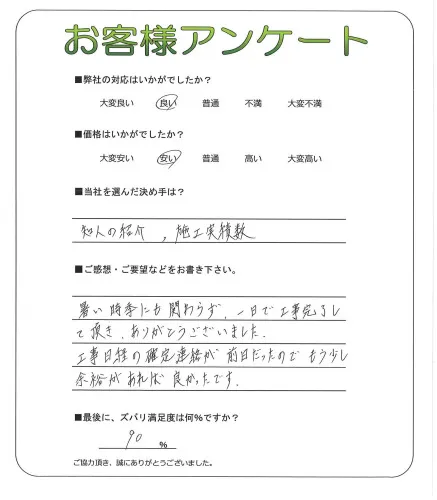 お客様アンケート
■弊社の対応はいかがでしたか?
大変良い 良い 普通 不満 大変不満
■価格はいかがでしたか?
大変安い 安い 普通 高い 大変高い
■当社を選んだ決め手は?
知人の紹介 , 施工実績数
■ご感想・ご要望などをお書き下さい。
暑い時季にも関わらず、一日で工事完了し
て頂き、ありがとうございました.
工事日程の確定連絡が前日だったのでもう少し
余裕があれば良かったです.
■最後に、ズバリ満足度は何%ですか?
90 %
ご協力頂き、誠にありがとうございました。